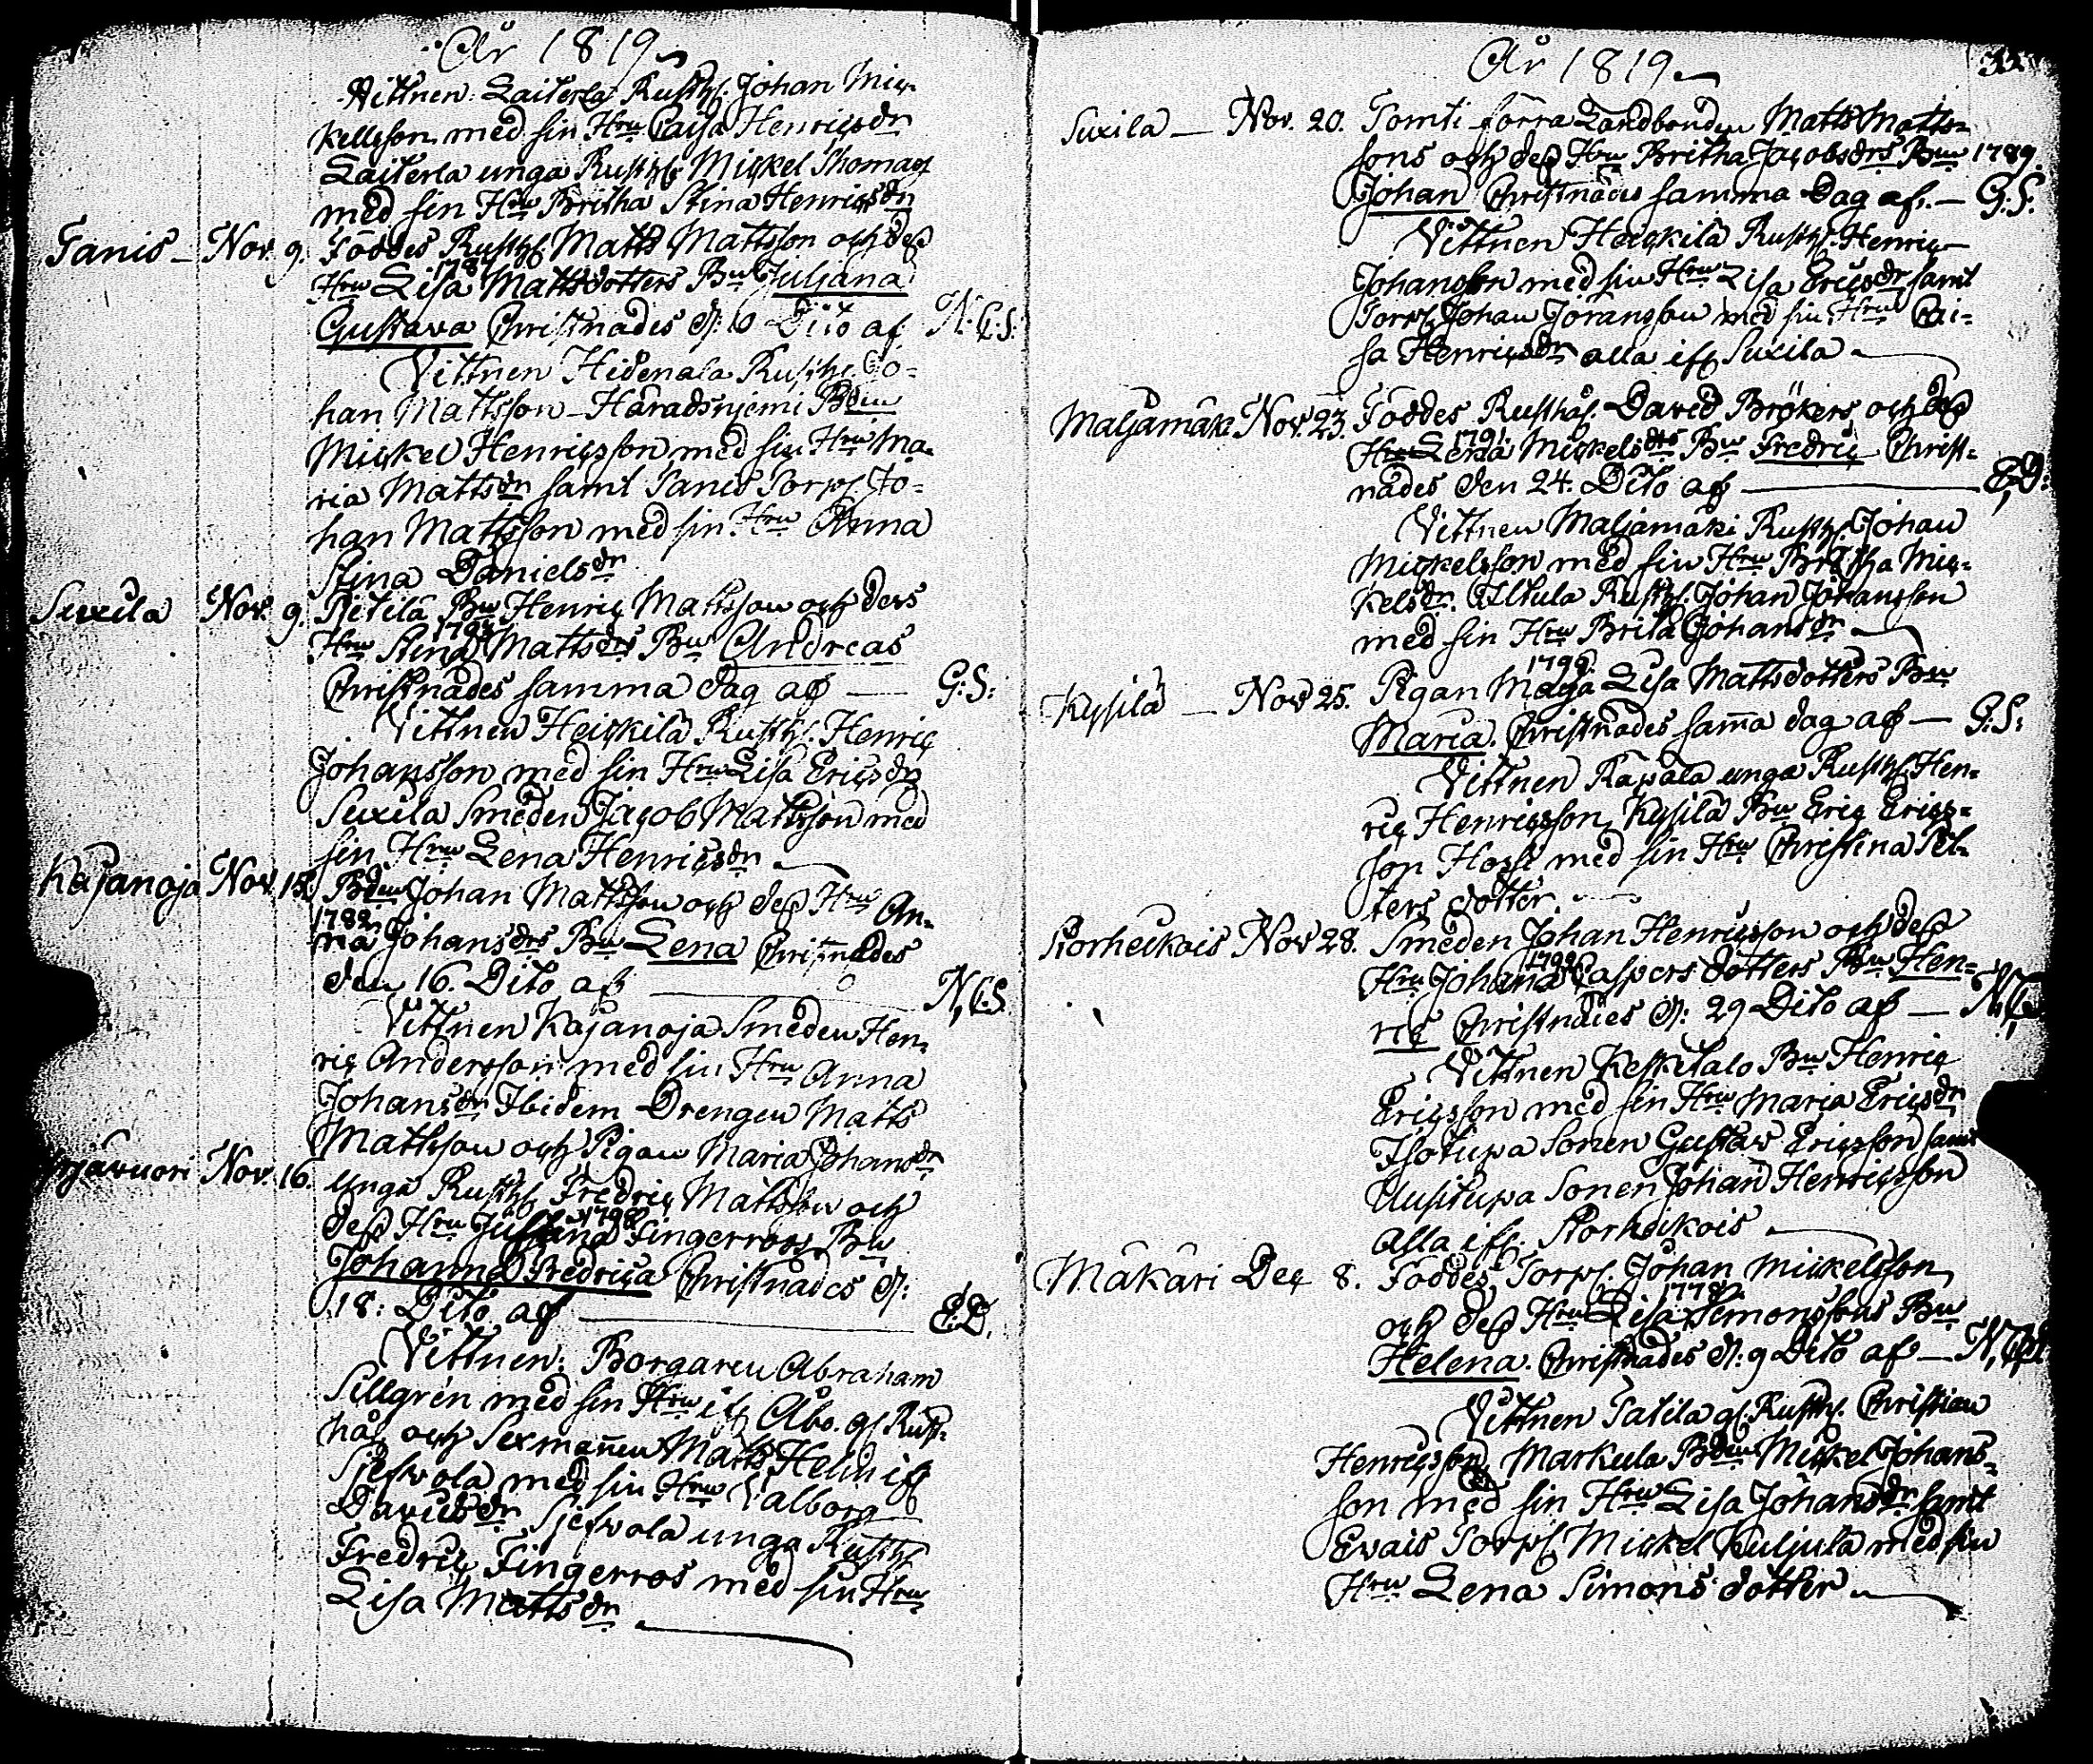 År 1819
Vittnen: Laiterla Rusth. Johan Mic-
kelsson med sin Hru Caisa Henricsdr
Laiterla unga Rusth. Mickel Thomass
med sin Hru Britha Stina Henricsdr
Tanis - Nov. 9. Föddes Rusth. Matts Mattsson och dess
1787
Hru Lisa Mattsdotters Bn Juljana
Gustava Christnades d: 10 Dito af N:C:S:
Vittnen Hidenala Rusth. Jo-
han Mattsson - Haradsnjemi Bden
Mickel Henricsson med sin Hru Ma-
ria Mattsdr samt Tanis Torp. Jo-
han Mattsson med sin Hru Anna
Stina Danielsdr
Suxila Nov. 9. Pitilä Bn Henric Mattsson och ders
Hru Stina Mattsdrs Bn Andreas
Christnades samma dag af — G:S:
Vittnen Heickilä Rusth. Henric
Johansson med sin Hru Lisa Ericsdr
Suxila Smeden Jacob Mattsson med
sin Hru Lena Henricsdr
Kajanoja Nov. 15. Bden Johan Mattsson och dess Hru An-
1782
na Johansdrs Bn Lena Christnades
den 16. Dito af N:C:S.
Vittnen Kajanoja Smeden Hen-
ric Andersson med sin Hru Anna
Johansdr Ibidem Drengen Matts
Mattsson och Pigan Maria Johansdr
Nov. 16. Unga Rusth. Fredric Mattsson och
1798
dess Hru Justina Fingerroos Bn
Johanna Fredrica Christnades d:
18: Dito af E:D.
Vittnen: Borgaren Abraham
Sellgrén med sin Hru if Åbo. gl Rust-
hål och Sexmannen Matts Helin if
Sjefvola med sin Hru Valborg
Davidsdr Sjefvola unga Rusth
Fredric Fingerros med sin Hru
Lisa Mattsdr
År 1819
Suxila — Nov. 20. Tomti förra Landbonden Matts Matts-
sons och dess Hru Britha Jacobsdrs Bn 1789.
Johan Christnades samma Dag af. — G:S.
Vittnen Heickilä Rusth. Henric
Johansson med sin Hru Lisa Ericsdr samt
Torp. Johan Joransson med sin Hru Cai-
sa Henricsdr alla if Suxila
Maljamäki Nov. 23. Föddes Rusthål. David Brökers och dess
1791
Hru Lena Mickelsdrs Bn Fredric Christ-
nades den 24. Dito af — E:D:
Vittnen Maljamäki Rusth. Johan
Mickelsson med sin Hru Britha Mic-
kelsdr. Iltula Rusth. Johan Johansson
med sin Hru Brita Johansdr
1799
Kysilä — Nov 25. Pigan Maja Lisa Mattsdotters Bn
Maria. Christnades sam̄a dag af — G:S:
Vittnen Rapala unga Rusth. Hen-
ric Henricsson, Kysilä Bn Eric Erics-
son med sin Hru Christina Pet-
ters dotter.
Storheikois Nov 28. Smeden Johan Henricsson och dess
Hru Johana Caspers dotters Bn Hen-
ric Christnades d: 29 Dito af —
Vittnen Keskitalo Bn Henric
Ericsson med sin Hru Maria Ericsdr
Isotupa Sonen Gustav Ericsson samt
Uusitupa Sonen Johan Henricsson
Alla if. Storheikois
Makari Dec 8. Föddes Torp. Johan Mickelsson
1778
och dess Hru Lisa Simonssons Bn
Helena. Christnades d: 9 Dito af —
Vittnen Tatila gl. Rusth. Christian
Henricsson, Markula Bden Mickel Johans-
son med sin Hru Lisa Johansdr samt
Evais Torp. Mickel Kuljula med sin
Hru Lena Simons dotter